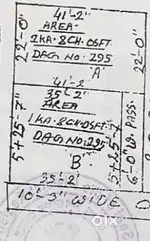 41'-2"
22'-0"
AREA-
2KA-8CH-0SFT.
DAG NO: 295
'A'
22'-0"
41'-2"
35'-2"
AREA
1KA-8CH-0SFT.
DAG NO: 295
'B'
5+25'-7"
5+25'-7"
6'-0" WD. PASS.
35'-2"
10'-3" WIDE
olx